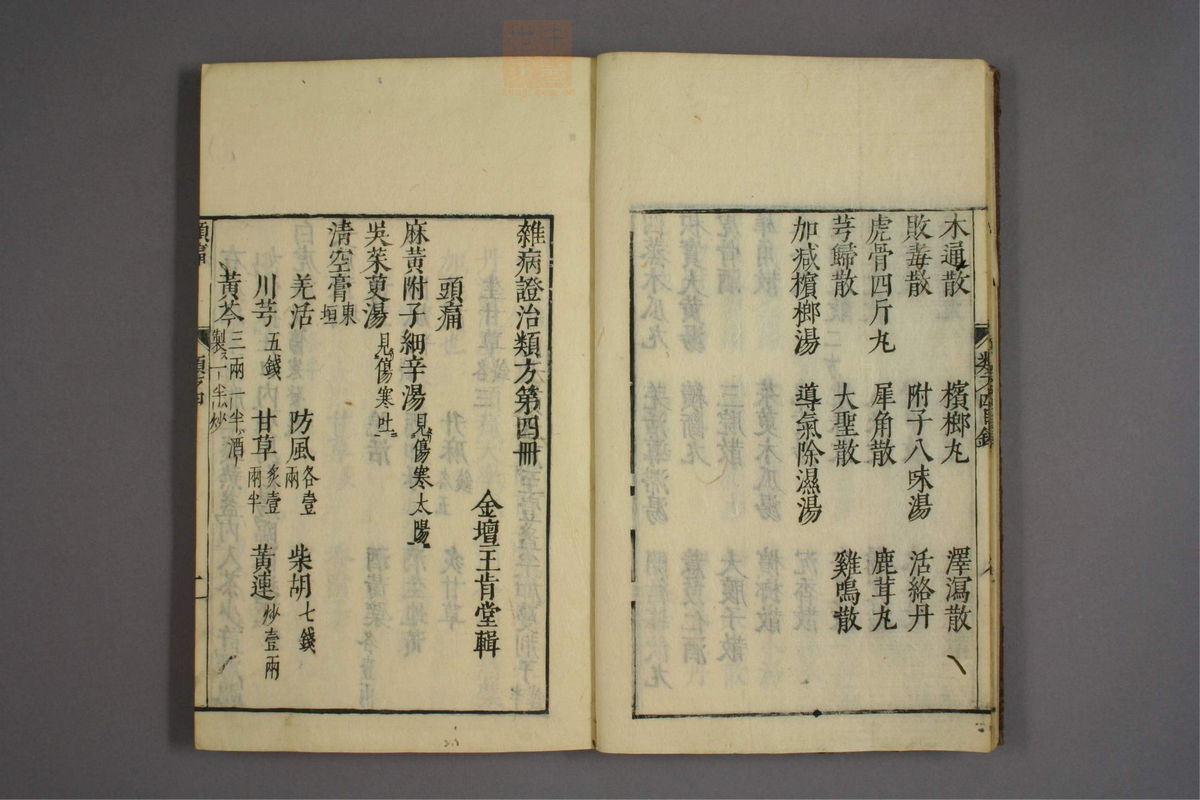 木通散 檳榔丸 澤瀉散
敗毒散 附子八味湯 活絡丹
虎骨四斤丸 犀角散 鹿茸丸
芎歸散 大聖散 雞鳴散
加減檳榔湯 導氣除濕湯
雜病證治類方第四冊
金壇王肯堂輯
頭痛
麻黃附子細辛湯 見傷寒太陽
吳茱萸湯 見傷寒吐
清空膏 東垣
羌活 防風 各壹兩 柴胡 七錢
川芎 五錢 甘草 炙壹兩半 黃連 炒壹兩
黃芩 三兩一半酒製一半炒